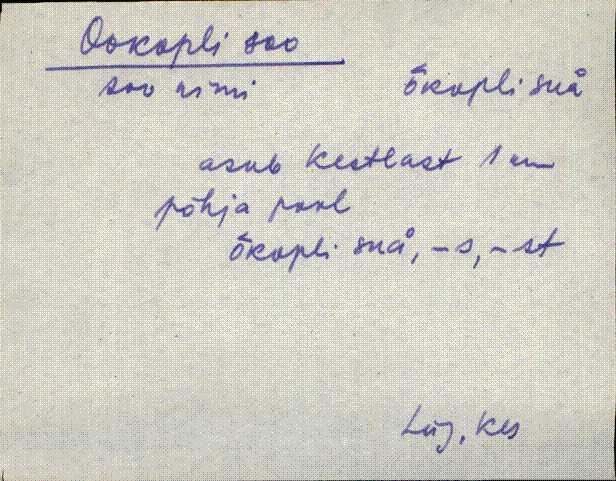 Ookopli soo
soo nimi ōkopli suå
asub Kestlast 1 km
põhja pool
ōkopli suå, -s, -st
Lüg, Kes